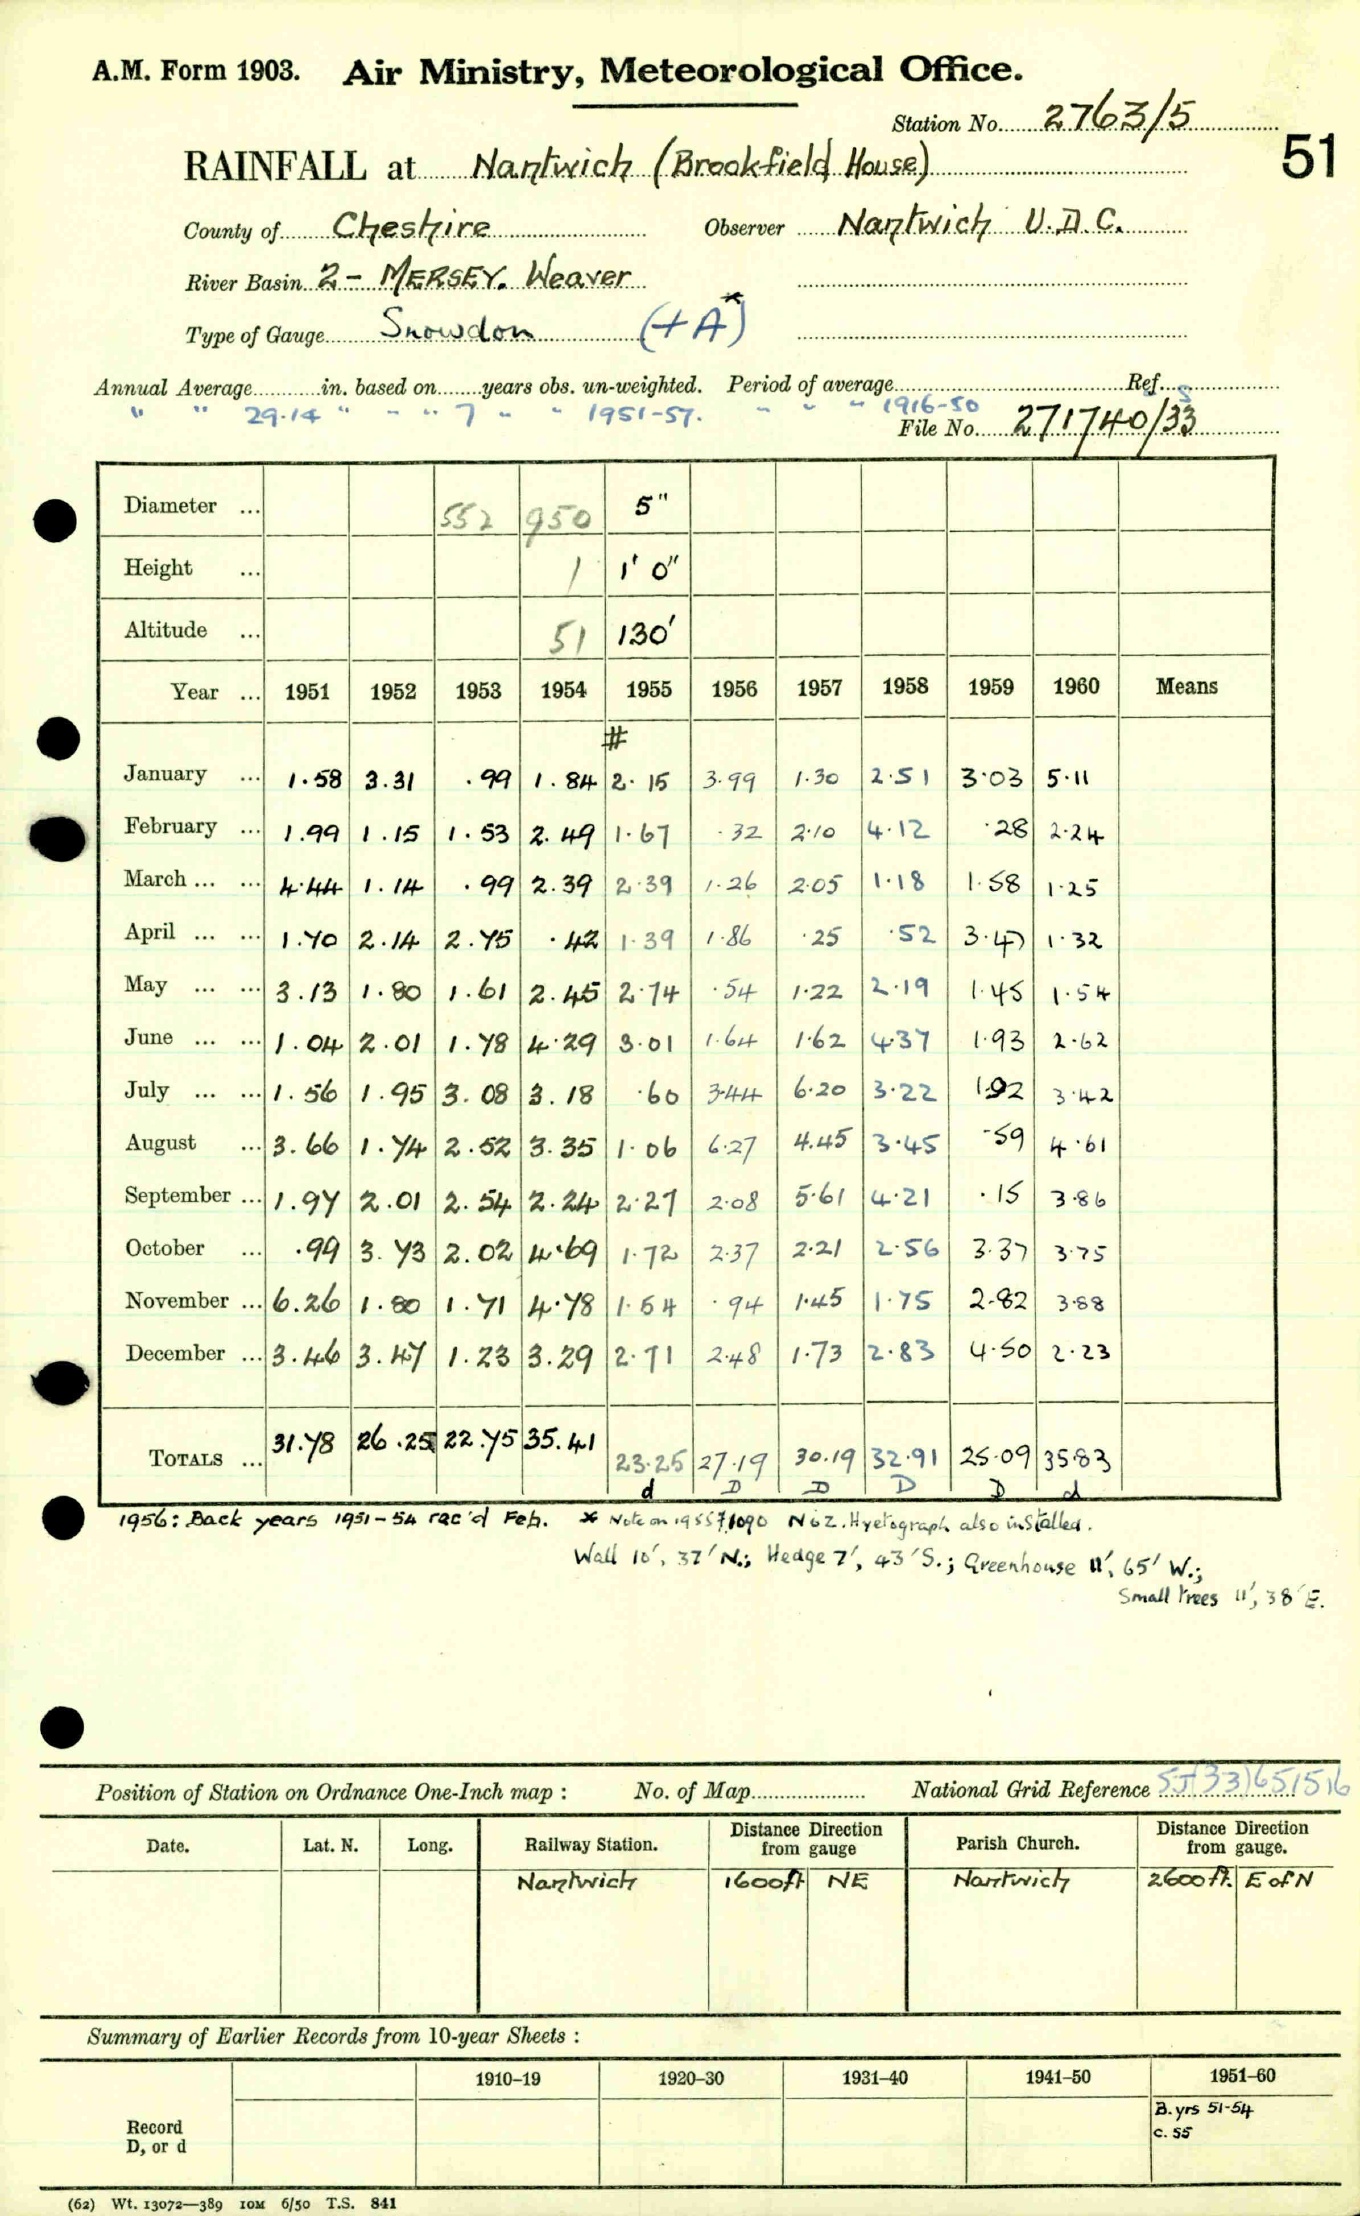 A.M. Form 1903. Air Ministry, Meteorological Office.
Station No. 2763/5
51
RAINFALL at Nantwich (Brookfield House)
County of Cheshire Observer Nantwich U.D.C.
River Basin 2 - MERSEY. Weaver
Type of Gauge Snowdon (+A*)
Annual Average in. based on years obs. un-weighted. Period of average Ref.
" " 29.14 " " " 7 " " 1951-57. " " " 1916-50 5
File No. 271740/33
Diameter ... 552 950 5"
Height ... 1 1' 0"
Altitude ... 51 130'
Year ... 1951 1952 1953 1954 1955 1956 1957 1958 1959 1960 Means
#
January ... 1.58 3.31 .99 1.84 2.15 3.99 1.30 2.51 3.03 5.11
February ... 1.99 1.15 1.53 2.49 1.67 .32 2.10 4.12 .28 2.24
March ... ... 4.44 1.14 .99 2.39 2.39 1.26 2.05 1.18 1.58 1.25
April ... ... 1.70 2.14 2.75 .42 1.39 1.86 .25 .52 3.47 1.32
May ... ... 3.13 1.80 1.61 2.45 2.74 .54 1.22 2.19 1.45 1.54
June ... ... 1.04 2.01 1.78 4.29 3.01 1.64 1.62 4.37 1.93 2.62
July ... ... 1.56 1.95 3.08 3.18 .60 3.44 6.20 3.22 1.92 3.42
August ... 3.66 1.74 2.52 3.35 1.06 6.27 4.45 3.45 .59 4.61
September ... 1.97 2.01 2.54 2.24 2.27 2.08 5.61 4.21 .15 3.86
October ... .99 3.73 2.02 4.69 1.72 2.37 2.21 2.56 3.37 3.75
November ... 6.26 1.80 1.71 4.78 1.54 .94 1.45 1.75 2.82 3.88
December ... 3.46 3.47 1.23 3.29 2.71 2.48 1.73 2.83 4.50 2.23
TOTALS ... 31.78 26.25 22.75 35.41 23.25 27.19 30.19 32.91 25.09 35.83
d D D D D d
1956: Back years 1951-54 rec'd Feb. * Note on 1955 1090 No 2. Hyetograph also installed.
Wall 10', 37' N.; Hedge 7', 43' S.; Greenhouse 11', 65' W.;
Small trees 11', 38' E.
Position of Station on Ordnance One-Inch map : No. of Map National Grid Reference SJ(33)651516
Date. Lat. N. Long. Railway Station. Distance Direction from gauge Parish Church. Distance Direction from gauge.
Nantwich 1600ft NE Nantwich 2600ft. E of N
Summary of Earlier Records from 10-year Sheets :
1910–19 1920–30 1931–40 1941–50 1951–60
Record
D, or d
B. yrs 51-54
c. 55
(62) Wt. 13072—389 10M 6/50 T.S. 841